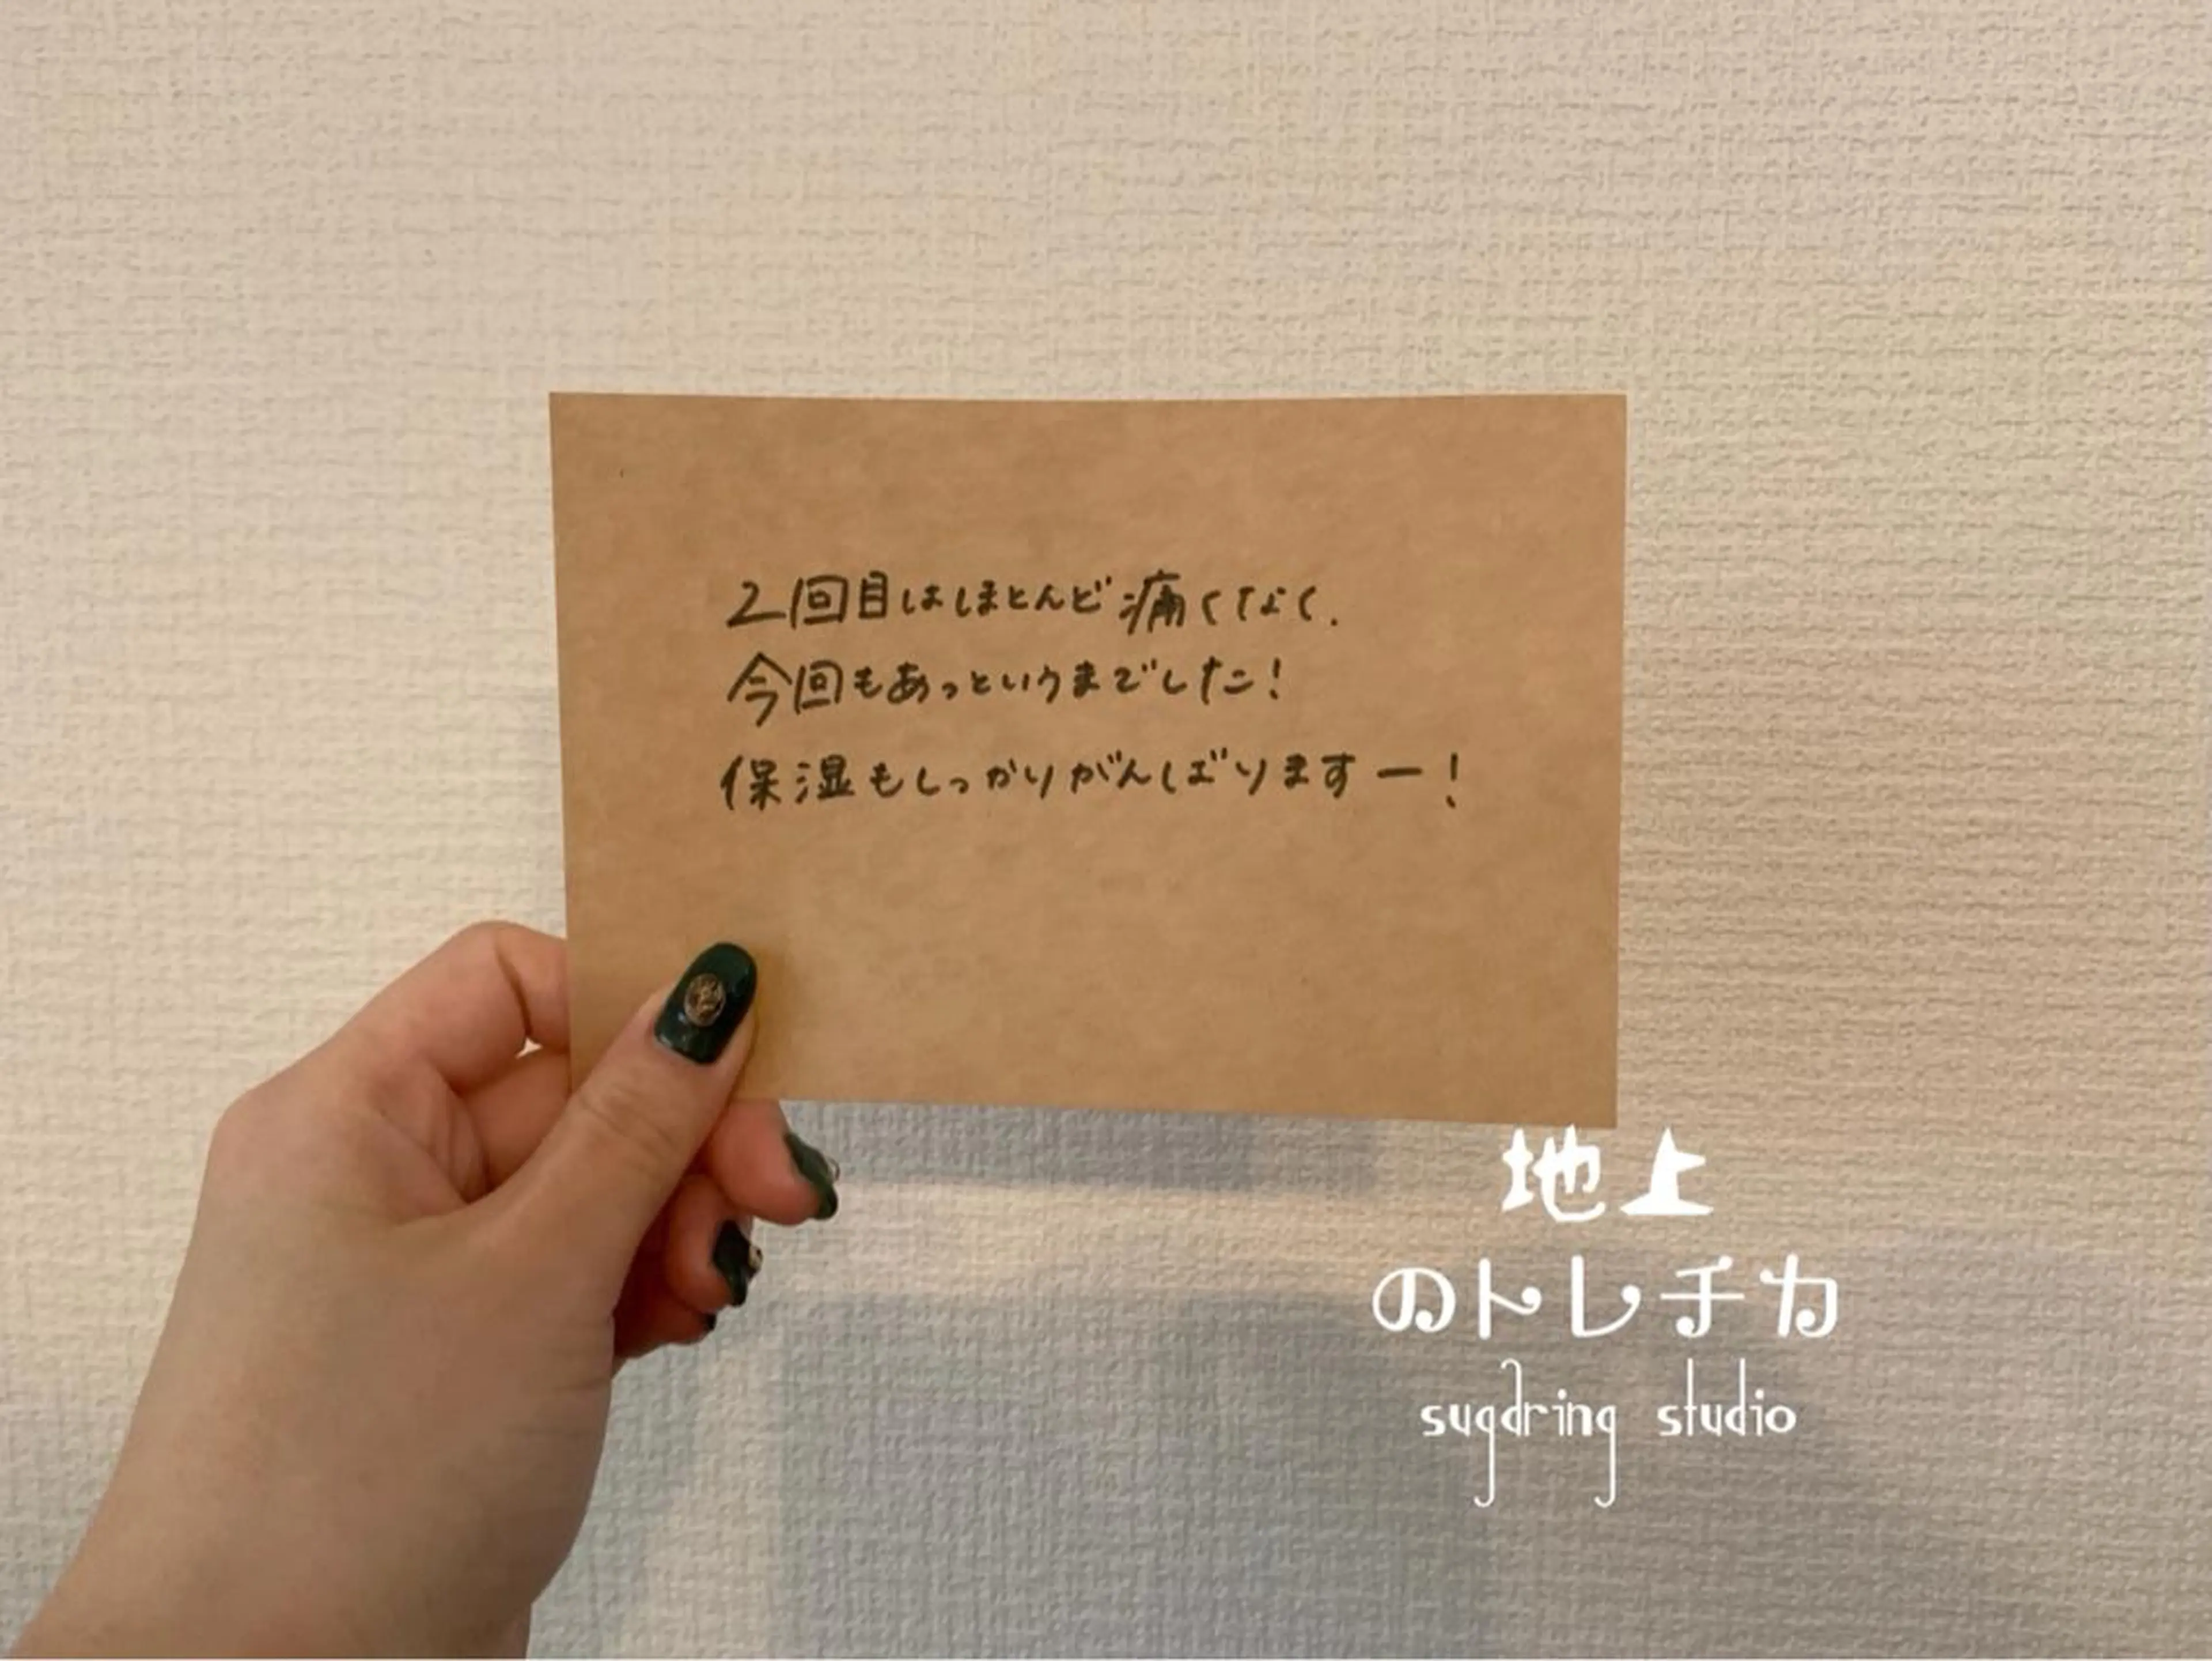 2回目はほとんど痛くなく.
今回もあっというまでした!
保湿もしっかりがんばりますー!
地上
のトレチカ
sugdring studio